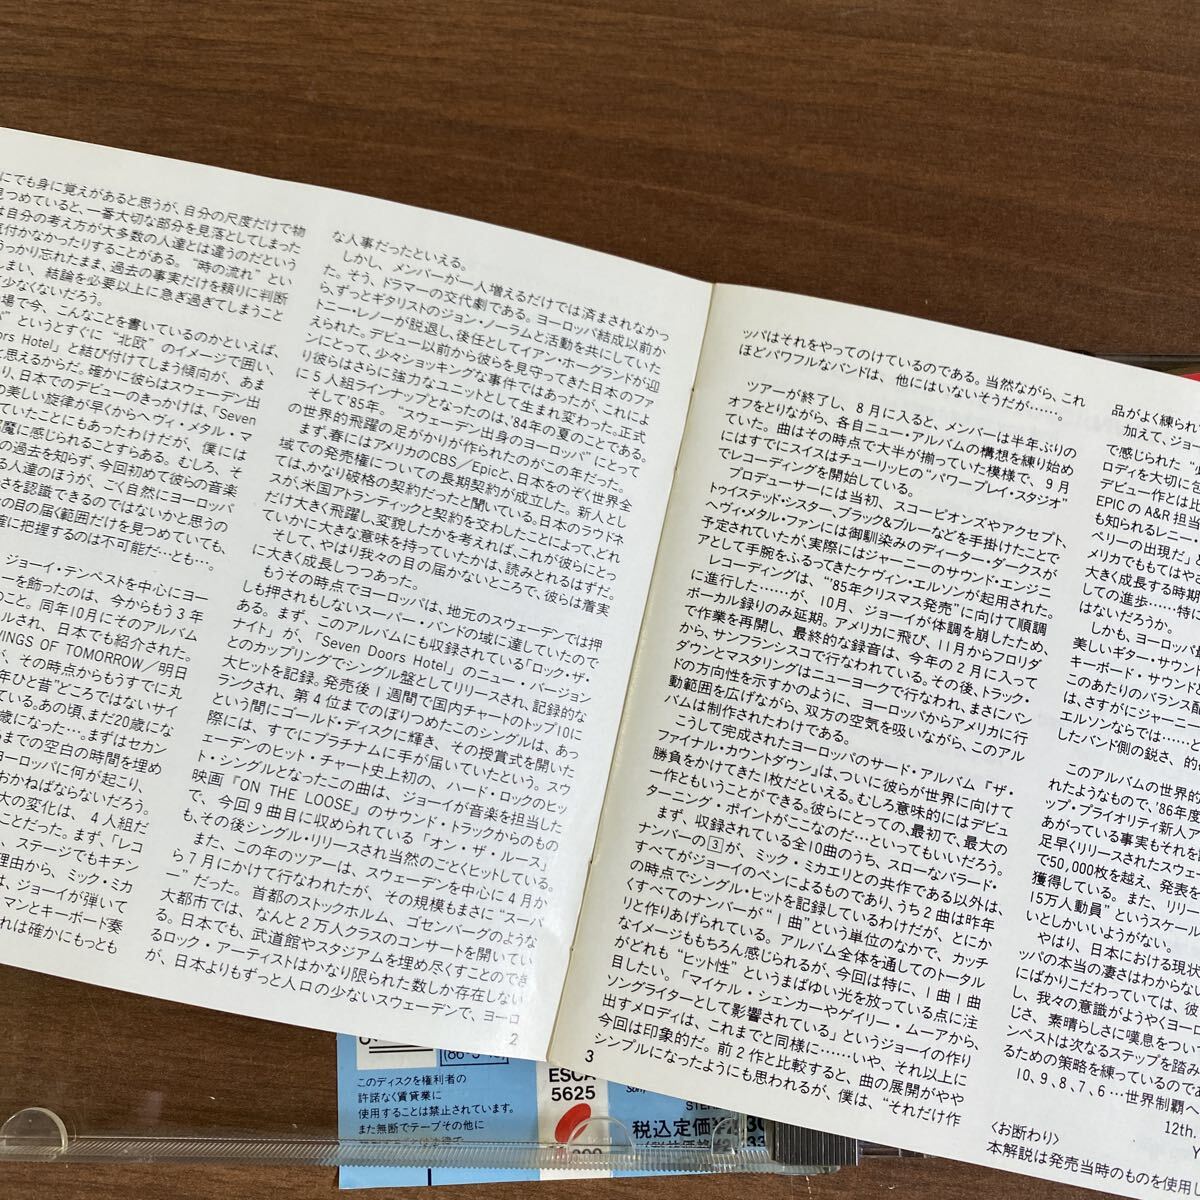 にでも身に覚えがあると思うが、自分の尺度だけで物
見つめていると、一番大切な部分を見落としてしまった
は自分の考え方が大多数の人達とは違うのだという
気付かなかったりすることがある。“時の流れ”とい
うっかり忘れたまま、過去の事実だけを頼りに判断
しまい、結論を必要以上に急ぎ過ぎてしまうこと
少なくないだろう。
場で今、こんなことを書いているのかといえば、
”というとすぐに“北欧”のイメージで囲い、
oors Hotel」と結び付けてしまう傾向が、あま
と思えるからだ。確かに彼らはスウェーデン出
り、日本でのデビューのきっかけは、「Seven
の美しい旋律が早くからヘヴィ・メタル・マ
ていたことにもあったわけだが、僕には
邪魔に感じられることすらある。むしろ、そ
の過去を知らず、今回初めて彼らの音楽
る人達のほうが、ごく自然にヨーロッパ
さを認識できるのではないかと思うの
の目の届く範囲だけを見つめていても、
確に把握するのは不可能だ…とも…。
ジョーイ・テンペストを中心にヨー
ーを飾ったのは、今からもう3年
のこと。同年10月にそのアルバム
ルされ、日本でも紹介された。
WINGS OF TOMORROW／明日
が、その時点からもうすでに丸
年ひと昔”どころではないサイ
ている。あの頃、まだ20歳にな
歳になった…。まずはセカン
までの空白の時間を埋め
ヨーロッパに何が起こり、
おかねばならないだろう。
大の変化は、4人組だ
ことだった。まず、「レコ
、ステージでもキチン
理由から、ミック・ミカ
は、ジョーイが弾いて
マンとキーボード奏
れは確かにもっとも
な人事だったといえる。
しかし、メンバーが一人増えるだけでは済まされなかっ
た。そう、ドラマーの交代劇である。ヨーロッパ結成以前か
ら、ずっとギタリストのジョン・ノーラムと活動を共にしていた
トニー・レノーが脱退し、後任としてイアン・ホーグランドが迎
えられた。デビュー以前から彼らを見守ってきた日本のファ
ンにとって、少々ショッキングな事件ではあったが、これによ
り彼らはさらに強力なユニットとして生まれ変わった。正式
に5人組ラインナップとなったのは、'84年の夏のことである。
そして'85年。“スウェーデン出身のヨーロッパ”にとって
の世界的飛躍の足がかりが作られたのがこの年だった。
まず、春にはアメリカのCBS／Epicと、日本をのぞく世界全
域での発売権についての長期契約が成立した。新人とし
ては、かなり破格の契約だったと聞いている。日本のラウドネ
スが、米国アトランティックと契約を交わしたことによって、どれ
だけ大きく飛躍し、変貌したかを考えれば、これが彼らにとっ
ていかに大きな意味を持っていたかは、読みとれるはずだ。
そして、やはり我々の目の届かないところで、彼らは着実
に大きく成長しつつあった。
もうその時点でヨーロッパは、地元のスウェーデンでは押
しも押されもしないスーパー・バンドの域に達していたので
ある。まず、このアルバムにも収録されている「ロック・ザ・
ナイト」が、「Seven Doors Hotel」のニュー・バージョン
とのカップリングでシングル盤としてリリースされ、記録的な
大ヒットを記録。発売後1週間で国内チャートのトップ10に
ランクされ、第4位までのぼりつめたこのシングルは、あっ
という間にゴールド・ディスクに輝き、その授賞式を開いた
際には、すでにプラチナムに手が届いていたという。スウ
ェーデンのヒット・チャート史上初の、ハード・ロックのヒッ
ト・シングルとなったこの曲は、ジョーイが音楽を担当した
映画『ON THE LOOSE』のサウンド・トラックからのもの
で、今回9曲目に収められている「オン・ザ・ルース」
も、その後シングル・リリースされ当然のごとくヒットしている。
また、この年のツアーは、スウェーデンを中心に4月か
ら7月にかけて行なわれたが、その規模もまさに“スーパ
ー”だった。首都のストックホルム、ゴセンバーグのような
大都市では、なんと2万人クラスのコンサートを開いてい
る。日本でも、武道館やスタジアムを埋め尽くすことのでき
るロック・アーティストはかなり限られた数しか存在しない
が、日本よりもずっと人口の少ないスウェーデンで、ヨーロ
2
ッパはそれをやってのけているのである。当然ながら、これ
ほどパワフルなバンドは、他にはいないそうだが……。
ツアーが終了し、8月に入ると、メンバーは半年ぶりの
オフをとりながら、各自ニュー・アルバムの構想を練り始め
ていた。曲はその時点で大半が揃っていた模様で、9月
にはすでにスイスはチューリッヒの“パワープレイ・スタジオ”
でレコーディングを開始している。
プロデューサーには当初、スコーピオンズやアクセプト、
トゥイステッド・シスター、ブラック＆ブルーなどを手掛けたことで
ヘヴィ・メタル・ファンには御馴染みのディーター・ダークスが
予定されていたが、実際にはジャーニーのサウンド・エンジニ
アとして手腕をふるってきたケヴィン・エルソンが起用された。
レコーディングは、“'85年クリスマス発売”に向けて順調
に進行した……が、10月、ジョーイが体調を崩したため、
ボーカル録りのみ延期。アメリカに飛び、11月からフロリダ
で作業を再開し、最終的な録音は、今年の2月に入って
から、サンフランシスコで行なわれている。その後、トラック・
ダウンとマスタリングはニューヨークで行なわれ、まさにバン
ドの方向性を示すかのように、ヨーロッパからアメリカに行
動範囲を広げながら、双方の空気を吸いながら、このアル
バムは制作されたわけである。
こうして完成されたヨーロッパのサード・アルバム『ザ・
ファイナル・カウントダウン』は、ついに彼らが世界に向けて
勝負をかけてきた1枚だといえる。むしろ意味的にはデビュ
ー作ともいうことができる。彼らにとっての、最初で、最大の
ターニング・ポイントがここなのだ…といってもいいだろう。
まず、収録されている全10曲のうち、スローなバラード・
ナンバーの[3]が、ミック・ミカエリとの共作である以外は、
すべてがジョーイのペンによるものであり、うち2曲は昨年
の時点でシングル・ヒットを記録しているわけだが、とにか
くすべてのナンバーが“1曲”という単位のなかで、カッチ
リと作りあげられている。アルバム全体を通してのトータル
なイメージももちろん感じられるが、今回は特に、1曲1曲
がどれも“ヒット性”というまばゆい光を放っている点に注
目したい。「マイケル・シェンカーやゲイリー・ムーアから、
ソングライターとして影響されている」というジョーイの作り
出すメロディは、これまでと同様に……いや、それ以上に
今回は印象的だ。前2作と比較すると、曲の展開がやや
シンプルになったようにも思われるが、僕は、“それだけ作
3
品がよく練られて
加えて、ジョー
で感じられた“
ロディを大切に
デビュー作とは比
EPICのA&R担当
も知られるレニー・
ペリーの出現だ」と
メリカでももてはや
大きく成長する時期
しての進歩……特に
はないだろうか。
しかも、ヨーロッパ最
美しいギター・サウンド
キーボード・サウンド
このあたりのバランス配
は、さすがにジャーニー
エルソンならでは……と
したバンド側の鋭さ、的
このアルバムの世界的
れたようなもので、'86年度
ップ・プライオリティ新人ア
あがっている事実もそれを
足早くリリースされたスウェー
で50,000枚を越え、発表を
獲得している。また、リリー
15万人動員”というスケール
いとしかいいようがない。
やはり、日本における現状
ッパの本当の凄さはわからない
にばかりこだわっていては、彼
し、我々の意識がようやくヨーロ
じさ、素晴らしさに嘆息をついて
ンペストは次なるステップを踏み
るための策略を練っているのであ
10、9、8、7、6…世界制覇へ
12th,
Y
〈お断わり〉
本解説は発売当時のものを使用し
このディスクを権利者の
許諾なく賃貸業に
使用することは禁止されています。
また無断でテープその他に
ESCA
5625
税込定価